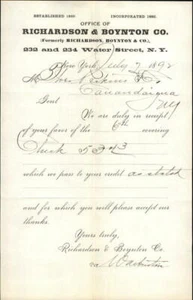 ESTABLISHED 18 INCORPORATED 18
OFFICE OF
RICHARDSON & BOYNTON CO.
(Formerly RICHARDSON, BOYNTON & CO.)
232 and 234 Water Street, N.Y.
New York July 7 1892
M
Canandaigua
NY
Gent
We are duly in receipt
of your favor of the 6th covering
Check 53 43
which we pass to your credit as stated
and for which you will please accept our
thanks.
Yours truly,
Richardson & Boynton Co.